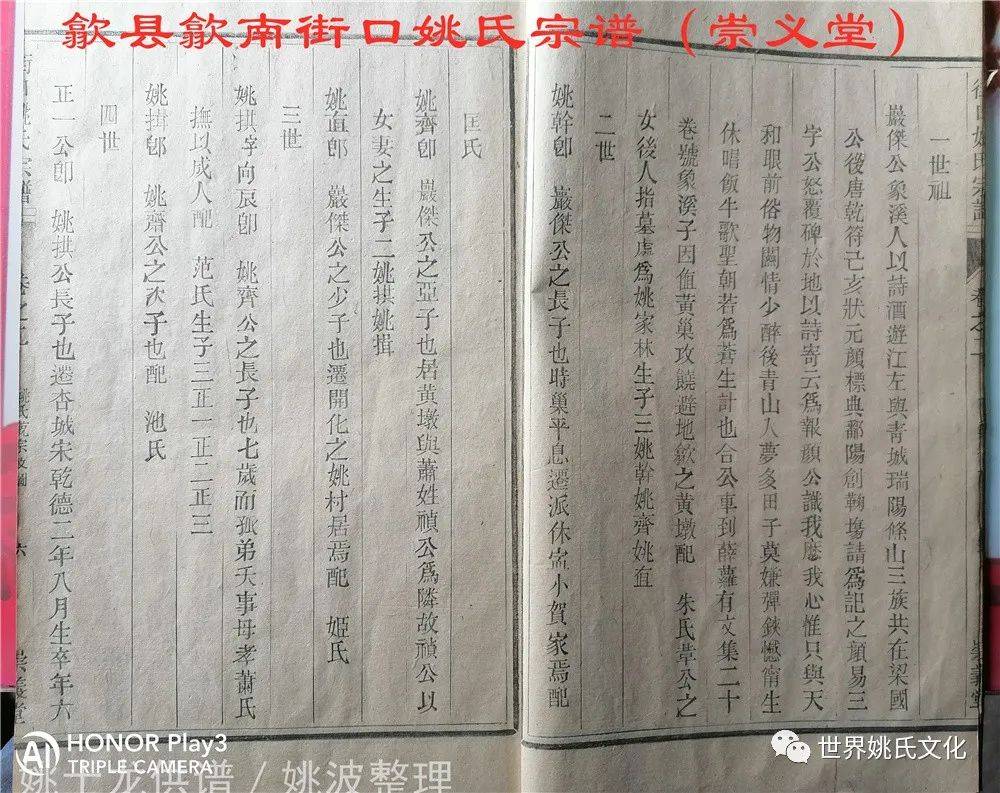 歙县歙南街口姚氏宗谱（崇义堂）
一世祖
巖傑公象溪人以詩酒遊江左與青城瑞陽條山三族共在梁國
公後唐乾符己亥狀元顔標典鄱陽創鞠塲請爲記之顔易三
字公怒覆碑於地以詩寄云爲報顔公識我麽我心惟只與天
和眼前俗物關情少醉後青山人夢多田子莫嫌彈鋏憾甯生
休唱飯牛歌聖朝若爲蒼生計也合公車到薜蘿有文集二十
卷號象溪子因值黃巢攻饒避地歙之黃墩配 朱氏葦公之
女後人指墓處爲姚家林生子三姚幹姚齊姚直
二世
姚幹卽 巖傑公之長子也時巢平息遷派休寍小賀家焉配
匡氏
姚齊卽 巖傑公之亞子也居黃墩與蕭姓禎公爲隣故禎公以
女妻之生子二姚拱姚揖
姚直卽 巖傑公之少子也遷開化之姚村居焉配 姬氏
三世
姚拱字向辰卽 姚齊公之長子也七歲而孤弟夭事母孝蕭氏
撫以成人配 范氏生子三正一正二正三
姚揖卽 姚齊公之次子也配 池氏
四世
正一公卽 姚拱公長子也遷杏城宋乾德二年八月生卒年六
街口姚氏宗譜
六
崇義堂
HONOR Play3
AI TRIPLE CAMERA
世界姚氏文化
姚千龙供谱 / 姚波整理